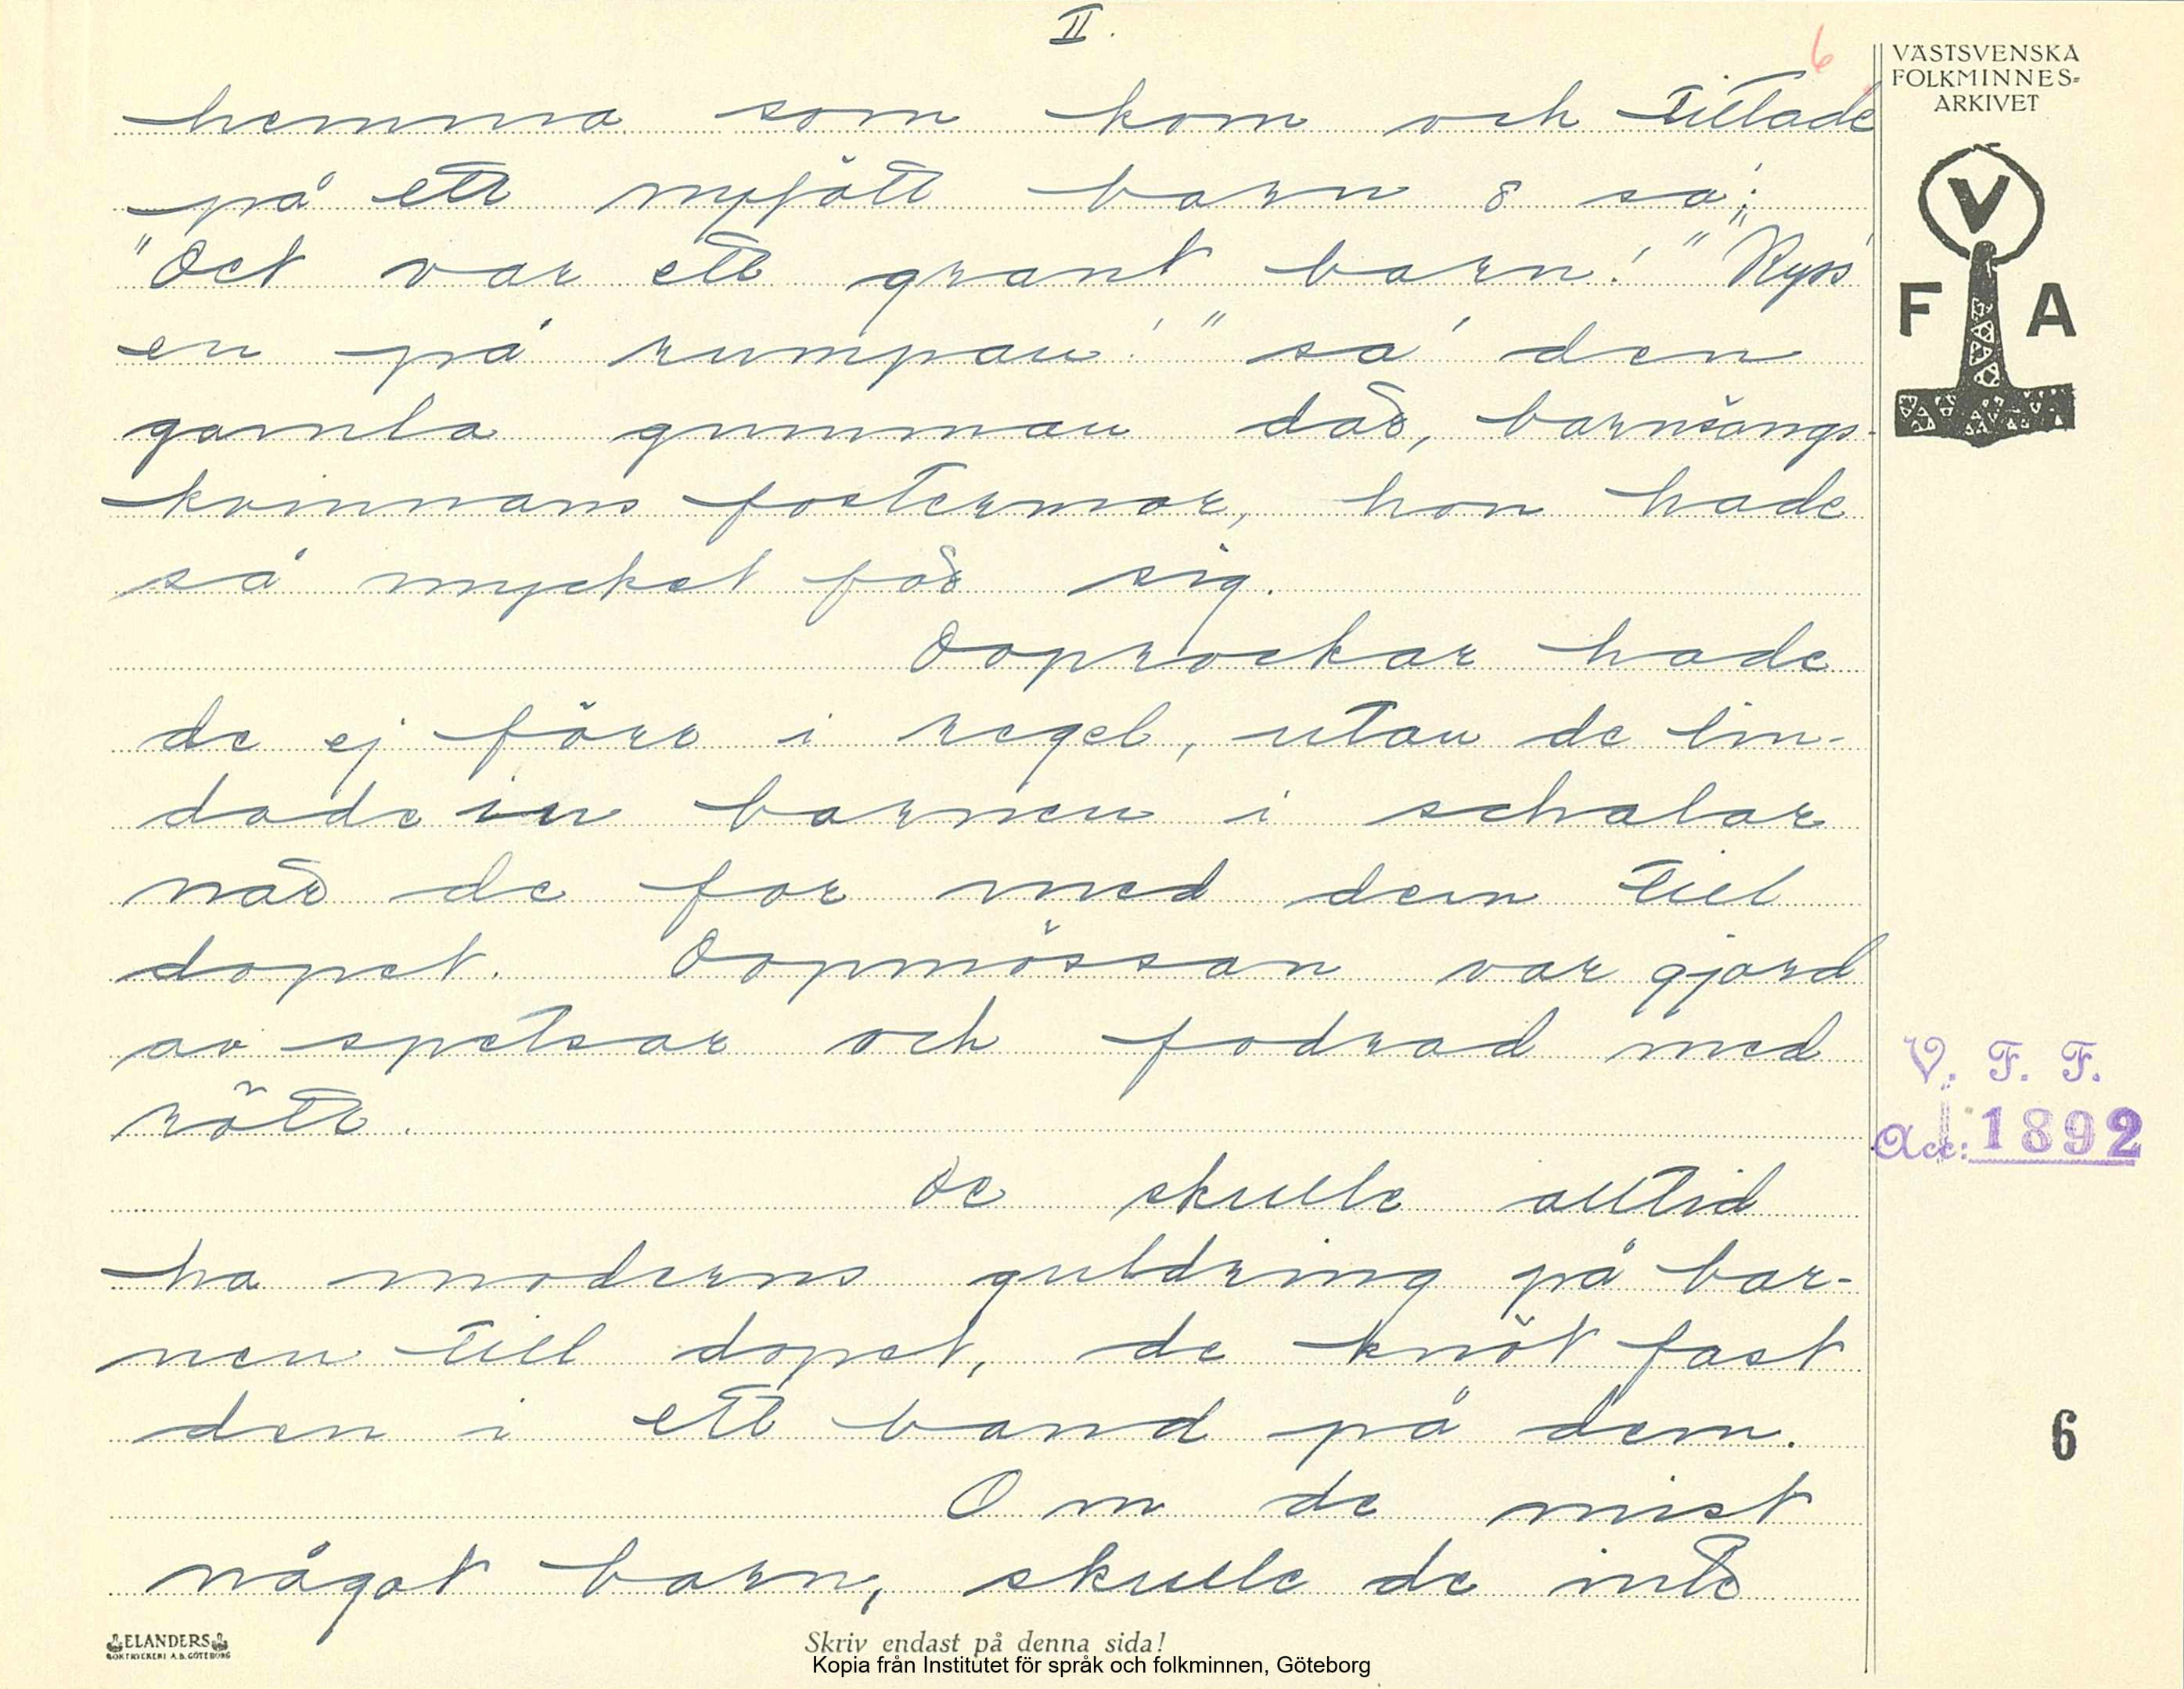 II.
6
hemma som kom och tittade
på ett nyfött barn & sa':
"Det var ett grant barn!" "Kyss
en på rumpan!" sa' den
gamla gumman då, barnsängs-
kvinnans fostermor, hon hade
så mycket för sig.
Doprockar hade
de ej förr i regel, utan de lin-
dade in barnen i schalar
när de for med dem till
dopet. Dopmössan var gjord
av spetsar och fodrad med
rött.
De skulle alltid
ha moderns guldring på bar-
nen till dopet, de knöt fast
den i ett band på dem.
Om de mist
något barn, skulle de inte
VÄSTSVENSKA
FOLKMINNES-
ARKIVET
V
F A
V. F. F.
Acc: 1892
6
ELANDERS
BOKTRYCKERI A.B. GÖTEBORG
Skriv endast på denna sida!
Kopia från Institutet för språk och folkminnen, Göteborg